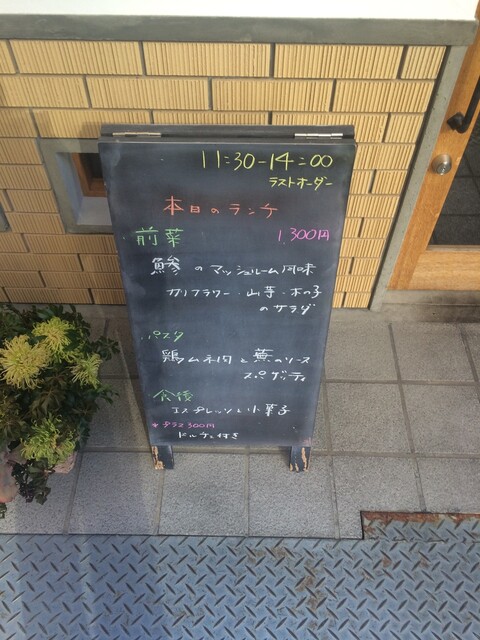 11:30-14:00
ラストオーダー
本日のランチ
前菜 1,300円
鯵のマッシュルーム風味
カリフラワー・山芋・木の子
のサラダ
パスタ
鶏ムネ肉と蕪のソース
スパゲッティ
食後
エスプレッソと小菓子
*プラス300円
ドルチェ付き